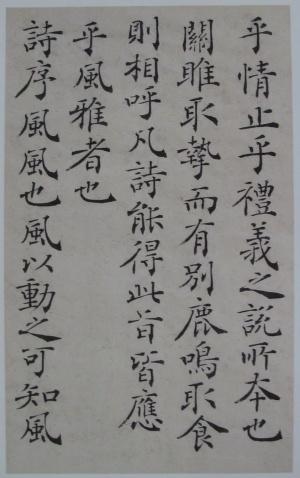 乎情止乎禮義之說所本也
關雎取摯而有別鹿鳴取食
則相呼凡詩能得此旨皆應
乎風雅者也
詩序風風也風以動之可知風